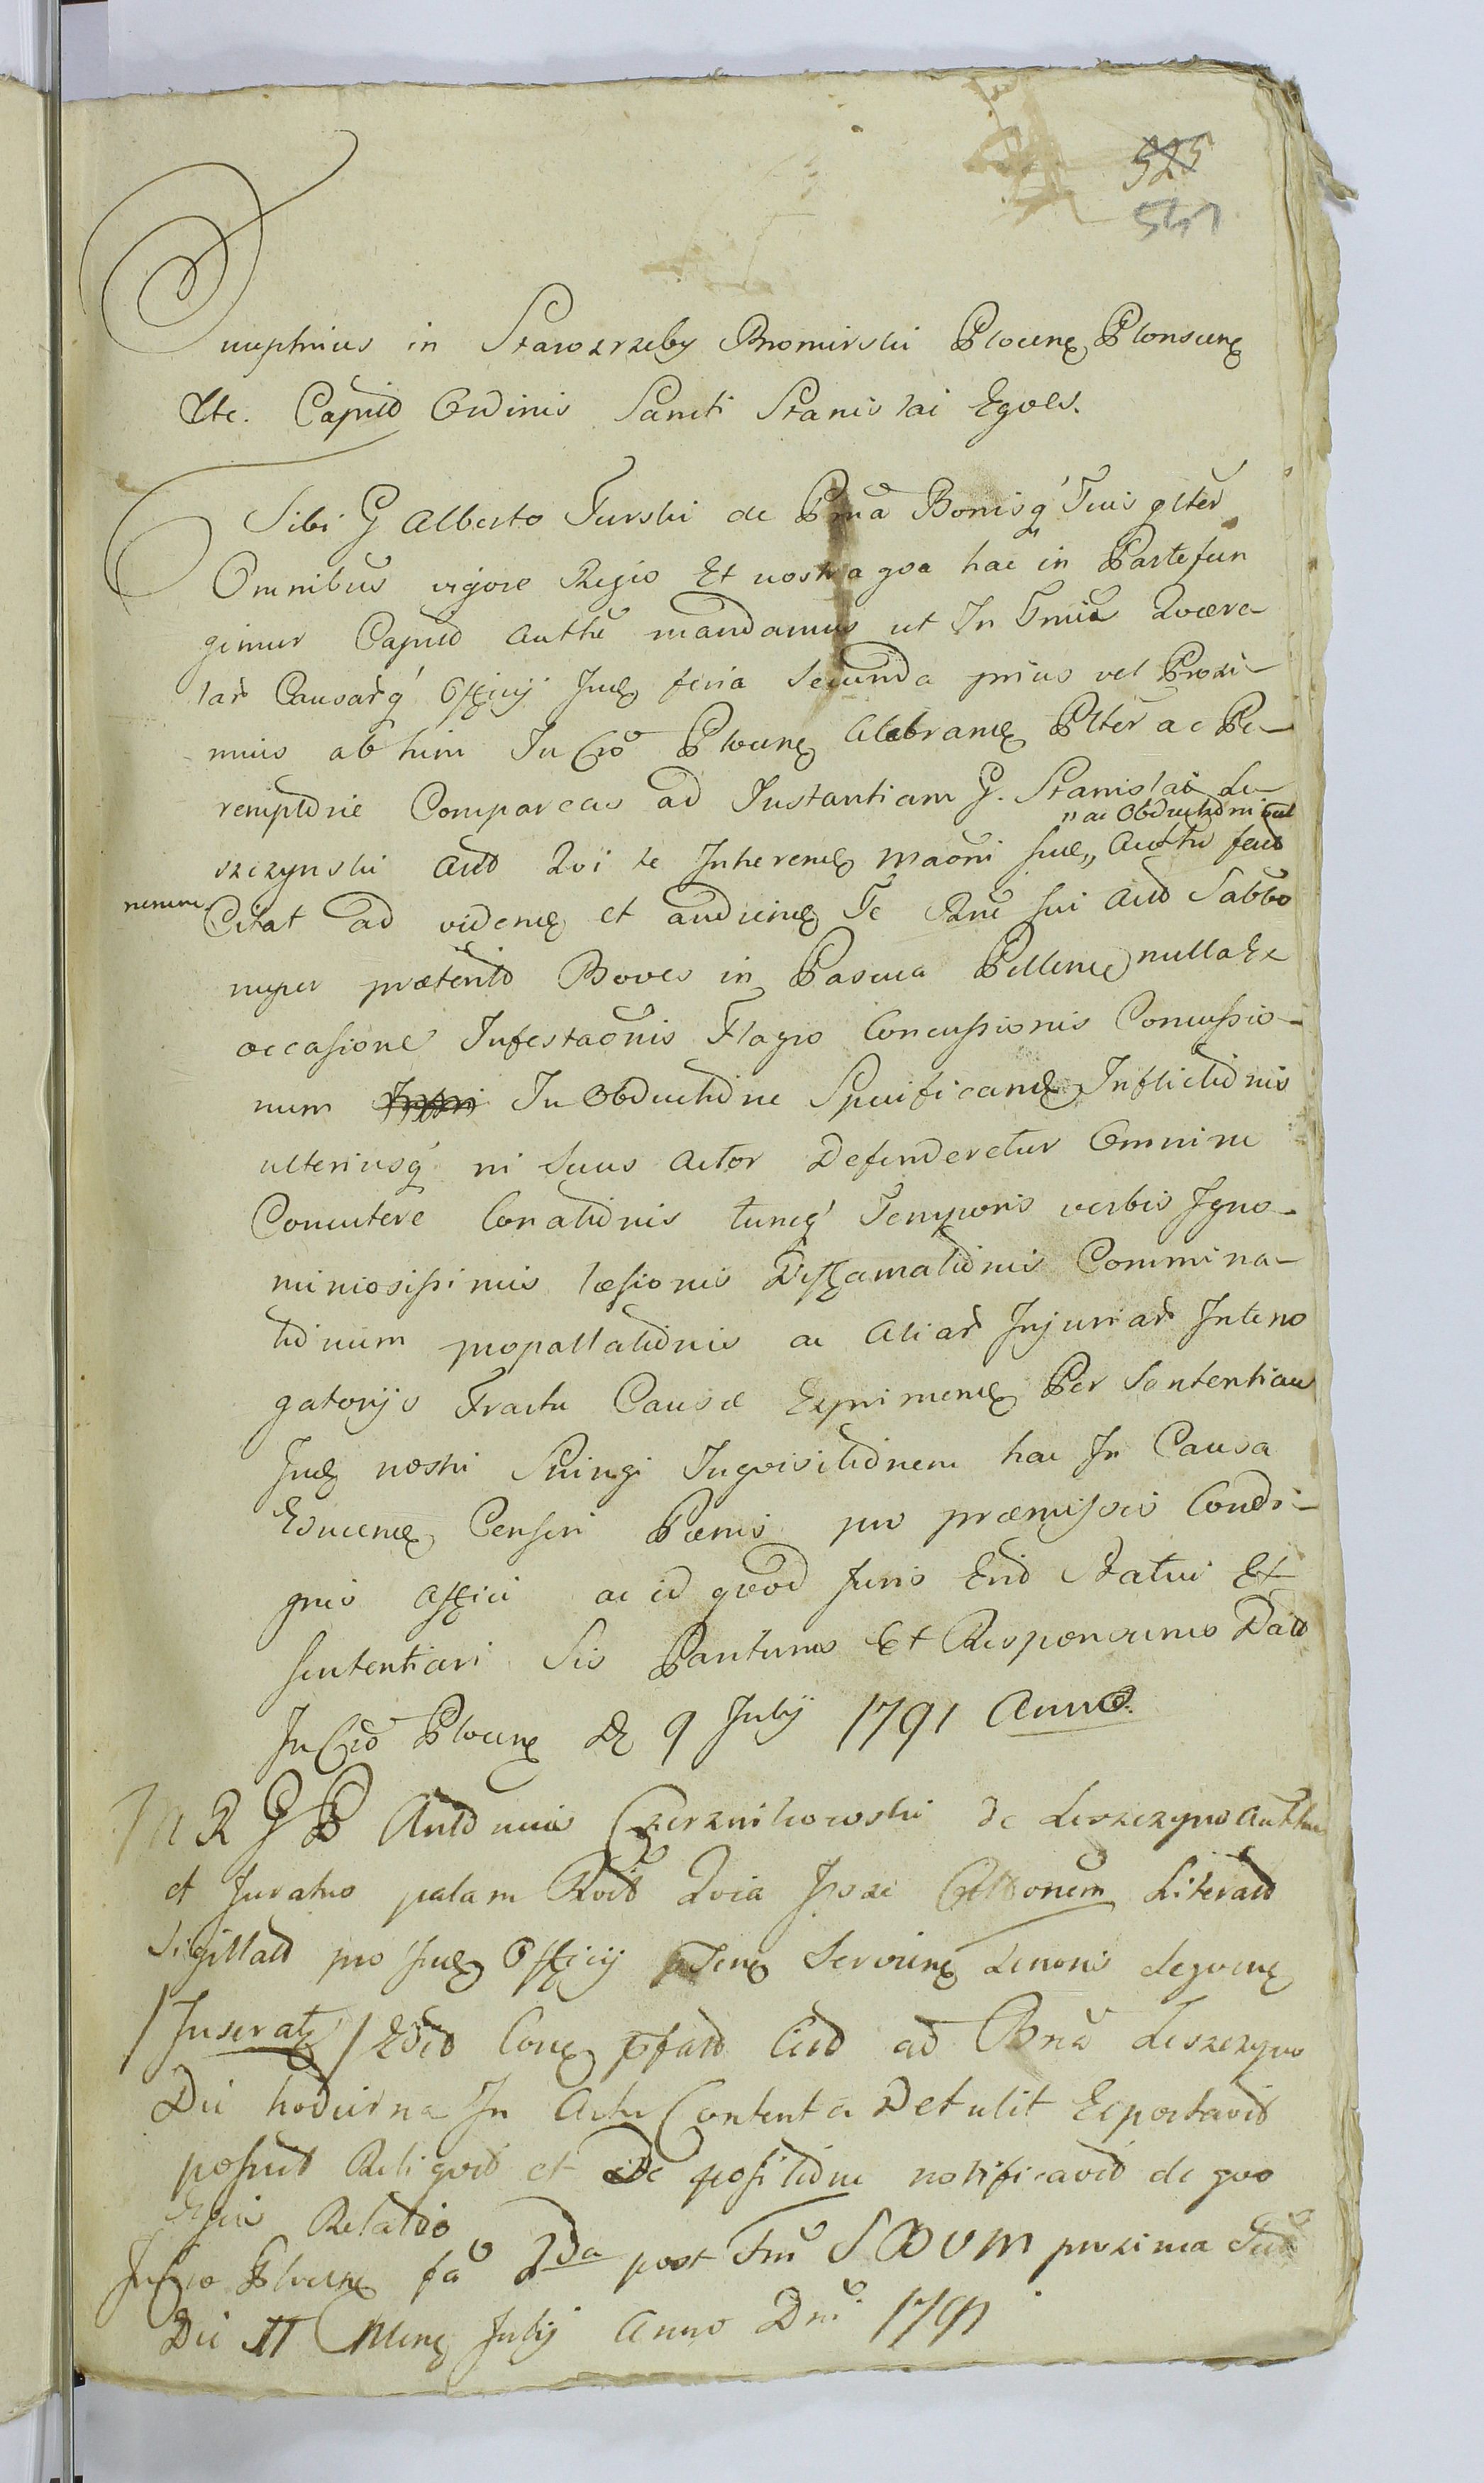 525
541
Onuphrius in Starozreby Bromirski Plocens Plonscens
Etc. Capnlis Ordinis Sancti Stanislai Eques.
Tibi G Alberto Turski de Psona Bonisq Tuis glter
Omnibus vigore Regio Et nostra qva hac in Parte fun
gimur Capnli Autthe mandamus ut In Tmis Qvære-
lar Causarq Officij Jud feria Secunda prius vel Proxi-
mius abhinc In Cro Plocens Celebrand Plter ac Pe-
remptorie Compareas ad Instantiam G. Stanislai Le-
„ ac Obductioni
szczynski Act Qvi te Inherend Maoni suæ „ Autthe fact
Citat ad vidend et audiend Te Qnm sui Act Sabbo
nuper præterito Boves in Pascua Pellend nulla Ex
occasione Infestaonis Flagro Concussionis Concussio-
num In Obductione Specificand Inflictionis
ulteriusq ni Suus Actor Defenderetur Omnino
Concutere Conationis tuncq Temporis verbis Igno-
miniosissimis læsionis Diffamationis Commina-
tionum propallationis ac Aliar Injuriar Interro
gatorijs Tractu Causæ Exprimend Per Sententiam
Jud nostri Stringi Inqvisitionem hac In Causa
Educend Censeri Pænis pro præmissis Condi-
gnis Affici ac id qvod Juris Erit Statui Et
Sententiari Sis Pariturus Et Responsurus Datt
In Cro Plocens D 9 Julij 1791 Anno.
M R G P Antonius Czerznikowski de Leszczyno Autthen
et Juratus palam Rvit Qvia Ipse Cittonem Literatt
Sigillatt pro Jud Officij ptens Serviens tenoris seqvens
/Inseratr/ Edid Cons pfatt Citt ad Bna Leszczyno
Die hodierna In Actu Contenta Detulit Exportavit
posuit Reliqvit et De positione notificavit de qvo
Ejus Relatio
In Cro Plocens fa 2da post Fm S VM proxima
Die 11 Mens Julij Anno Dni 1791